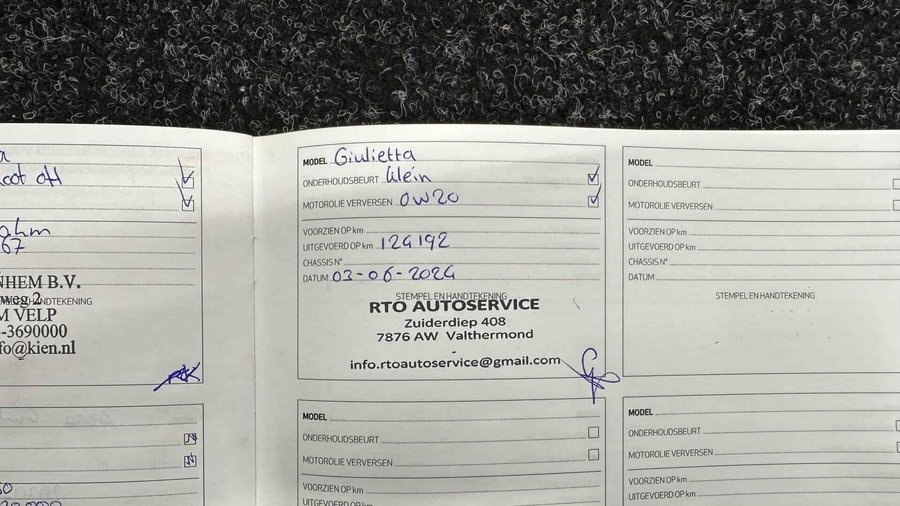 oot
ahm
67
NHEM B.V.
weg 2
HANDTEKENING
M VELP
-3690000
fo@kien.nl
MODEL Giulietta
ONDERHOUDSBEURT klein
MOTOROLIE VERVERSEN 0W20
VOORZIEN OP km
UITGEVOERD OP km 124192
CHASSIS N°
DATUM 03-06-2024
STEMPEL EN HANDTEKENING
RTO AUTOSERVICE
Zuiderdiep 408
7876 AW Valthermond
info.rtoautoservice@gmail.com
MODEL
ONDERHOUDSBEURT
MOTOROLIE VERVERSEN
VOORZIEN OP km
UITGEVOERD OP km
MODEL
ONDERHOUDSBEURT
MOTOROLIE VERVERSEN
VOORZIEN OP km
UITGEVOERD OP km
CHASSIS N°
DATUM
STEMPEL EN HANDTEKENING
MODEL
ONDERHOUDSBEURT
MOTOROLIE VERVERSEN
VOORZIEN OP km
UITGEVOERD OP km